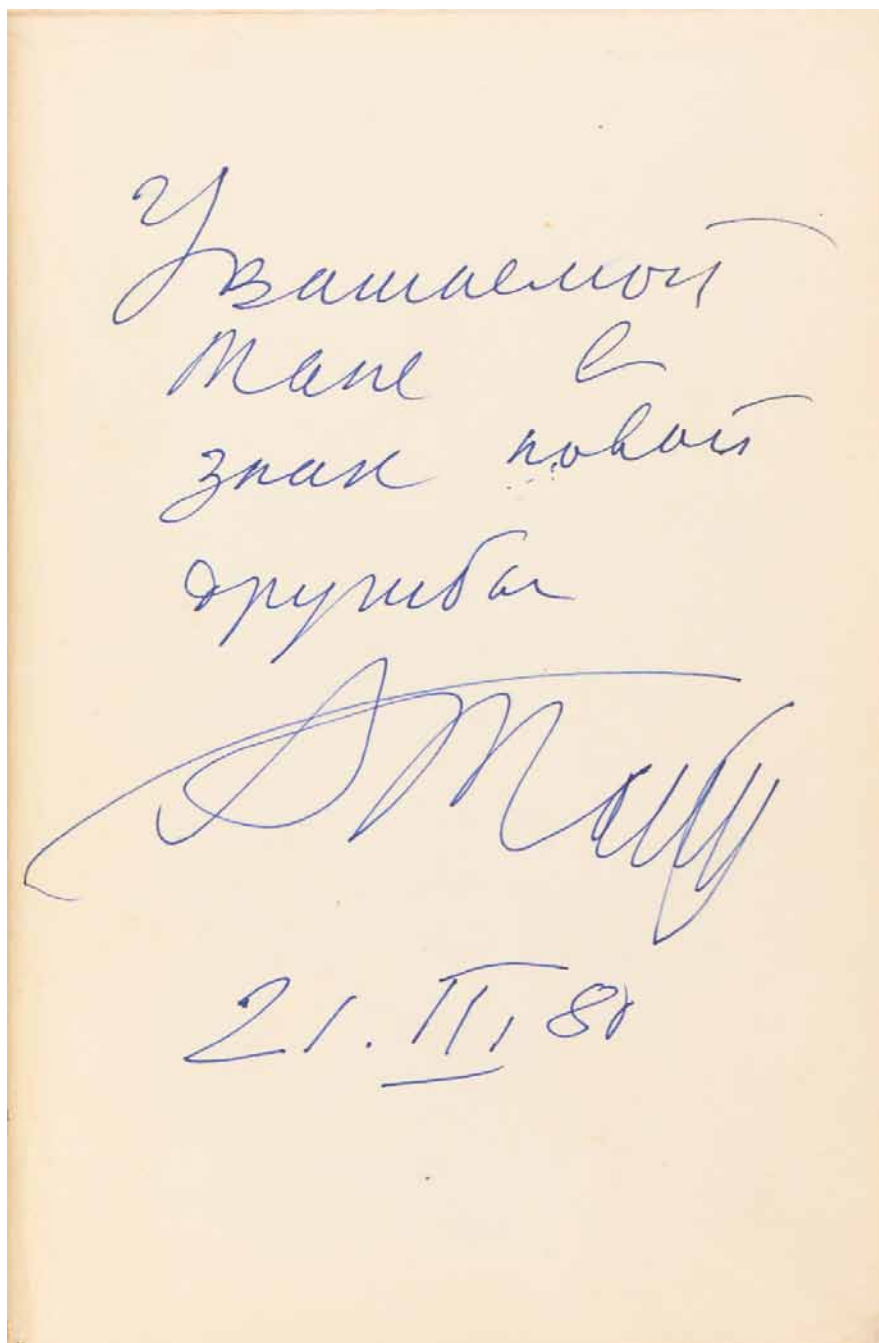 Уважаемой
Тане в
знак новой
дружбы
21.III.80